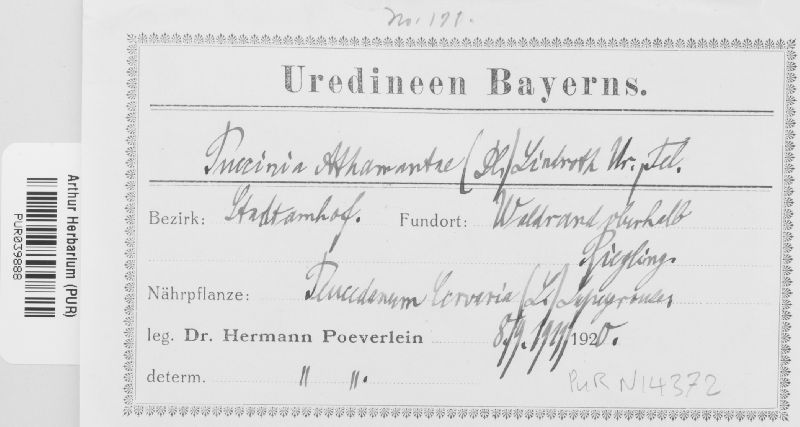 No. 199.
Uredineen Bayerns.
Puccinia Athamantae (DC.) Lindroth Ur. Tel.
Bezirk: Stadtamhof. Fundort: Waldrand oberhalb
Riegling.
Nährpflanze: Peucedanum Cervaria (L.) Lapeyrouse
leg. Dr. Hermann Poeverlein 8./9. 1920.
determ. " ".
PUR N14372
Arthur Herbarium (PUR)
PUR039888